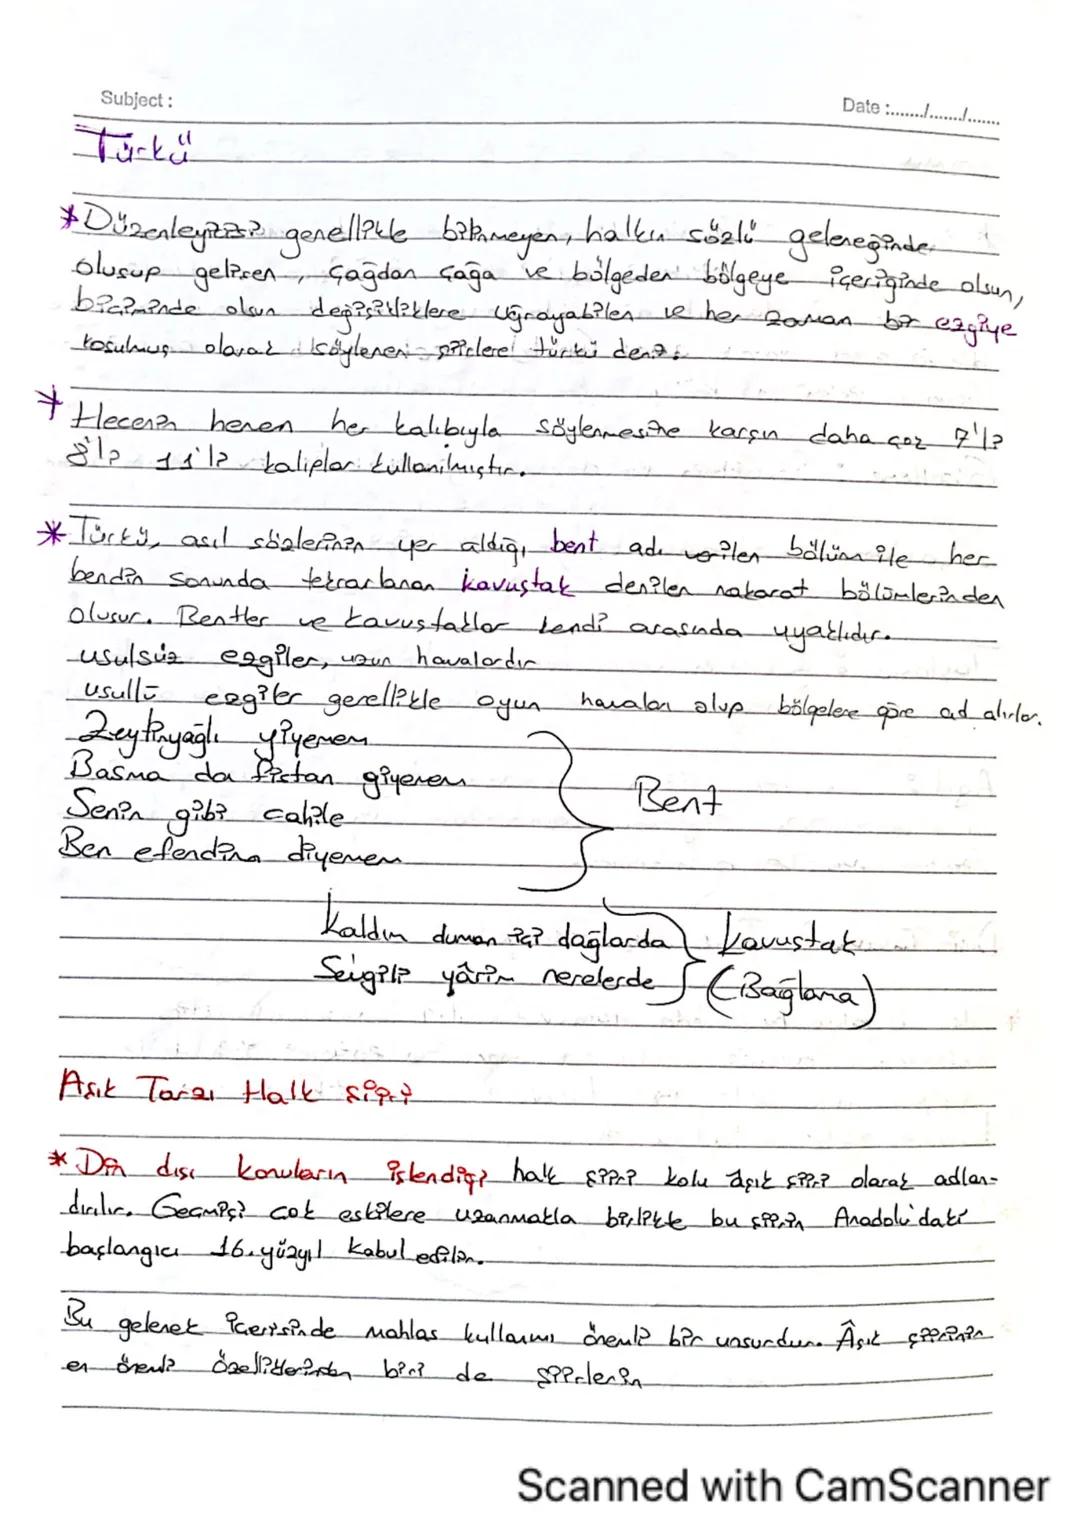 Subject :
Date :......./......./.......
Türkü
*Düzenleyicisi genellikle bilinmeyen, halkın sözlü geleneğinde
oluşup gelişen, çağdan çağa ve bölgeden bölgeye içeriğinde olsun,
biçiminde olsun değişikliklere uğrayabilen ve her zaman bir ezgiye
koşulmuş olarak söylenen şiirlere türkü denir.
* Hecenin hemen her kalıbıyla söylenmesine karşın daha çok 7'li
8'li 11'li kalıplar kullanılmıştır.
* Türkü, asıl sözlerinin yer aldığı, bent adı verilen bölüm ile her
bendin sonunda tekrarlanan kavuştak denilen nakarat bölümlerinden
oluşur. Bentler ve kavuştaklar kendi arasında uyaklıdır.
usulsüz ezgiler, uzun havalardır
usullü ezgiler genellikle oyun havaları olup bölgelere göre ad alırlar.
Zeytinyağlı yiyemem
Basma da fistan giyemem
Senin gibi cahile
Ben efendim diyemem
Bent
Kaldım duman içi dağlarda
Sevgili yârim nerelerde
Kavuştak
(Bağlama)
Aşık Tarzı Halk şiiri
* Din dışı konuların işlendiği halk şiiri kolu aşık şiiri olarak adlan-
dırılır. Geçmişi çok eskilere uzanmakla birlikte bu şiirin Anadolu'daki
başlangıcı 16.yüzyıl kabul edilir.
Bu gelenek içerisinde mahlas kullanımı önemli bir unsurdur. Âşık şiirinin
en önemli özelliklerinden biri de şiirlerin
Scanned with CamScanner